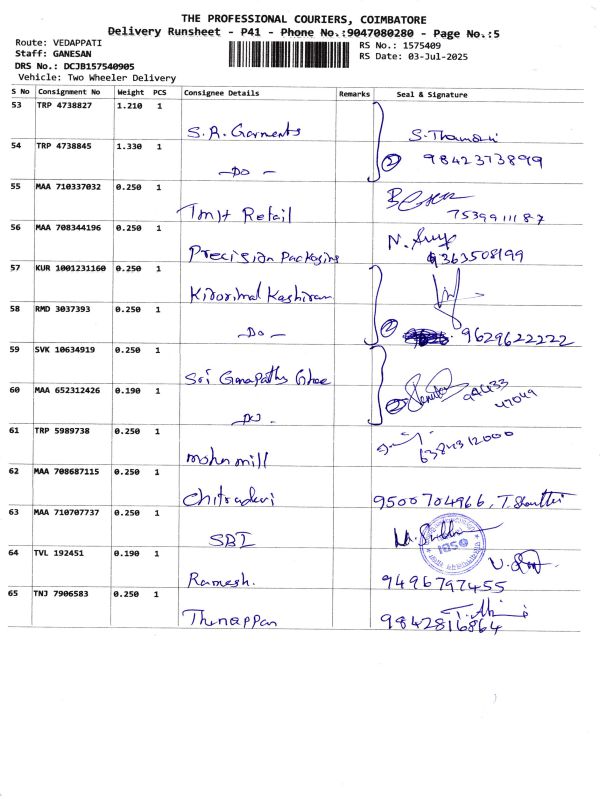 THE PROFESSIONAL COURIERS, COIMBATORE
Delivery Runsheet - P41 - Phone No.:9047080280 - Page No.:5
Route: VEDAPPATI RS No.: 1575409
Staff: GANESAN RS Date: 03-Jul-2025
DRS No.: DCJB157540905
Vehicle: Two Wheeler Delivery
S No Consignment No Weight PCS Consignee Details Remarks Seal & Signature
53 TRP 4738827 1.210 1
S.R. Garments
54 TRP 4738845 1.330 1
-Do- 2 9842373899
55 MAA 710337032 0.250 1
Tmjt Retail 7539911187
56 MAA 708344196 0.250 1
Precision Packaging 9363508199
57 KUR 1001231160 0.250 1
Kidorimal Kashiram
58 RMD 3037393 0.250 1
-Do- 2 9629622222
59 SVK 10634919 0.250 1
Sri Ganapathy Ghee
60 MAA 652312426 0.190 1
-Do- 2 94433 47049
61 TRP 5989738 0.250 1
mohn mill 6384312000
62 MAA 708687115 0.250 1
Chitradevi 9500704966,
63 MAA 710707737 0.250 1
SBI
64 TVL 192451 0.190 1
Ramesh. 9496797455
65 TNJ 7906583 0.250 1
Thinappan 9842816864